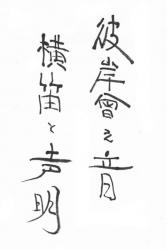 彼岸會之音
横笛と声明